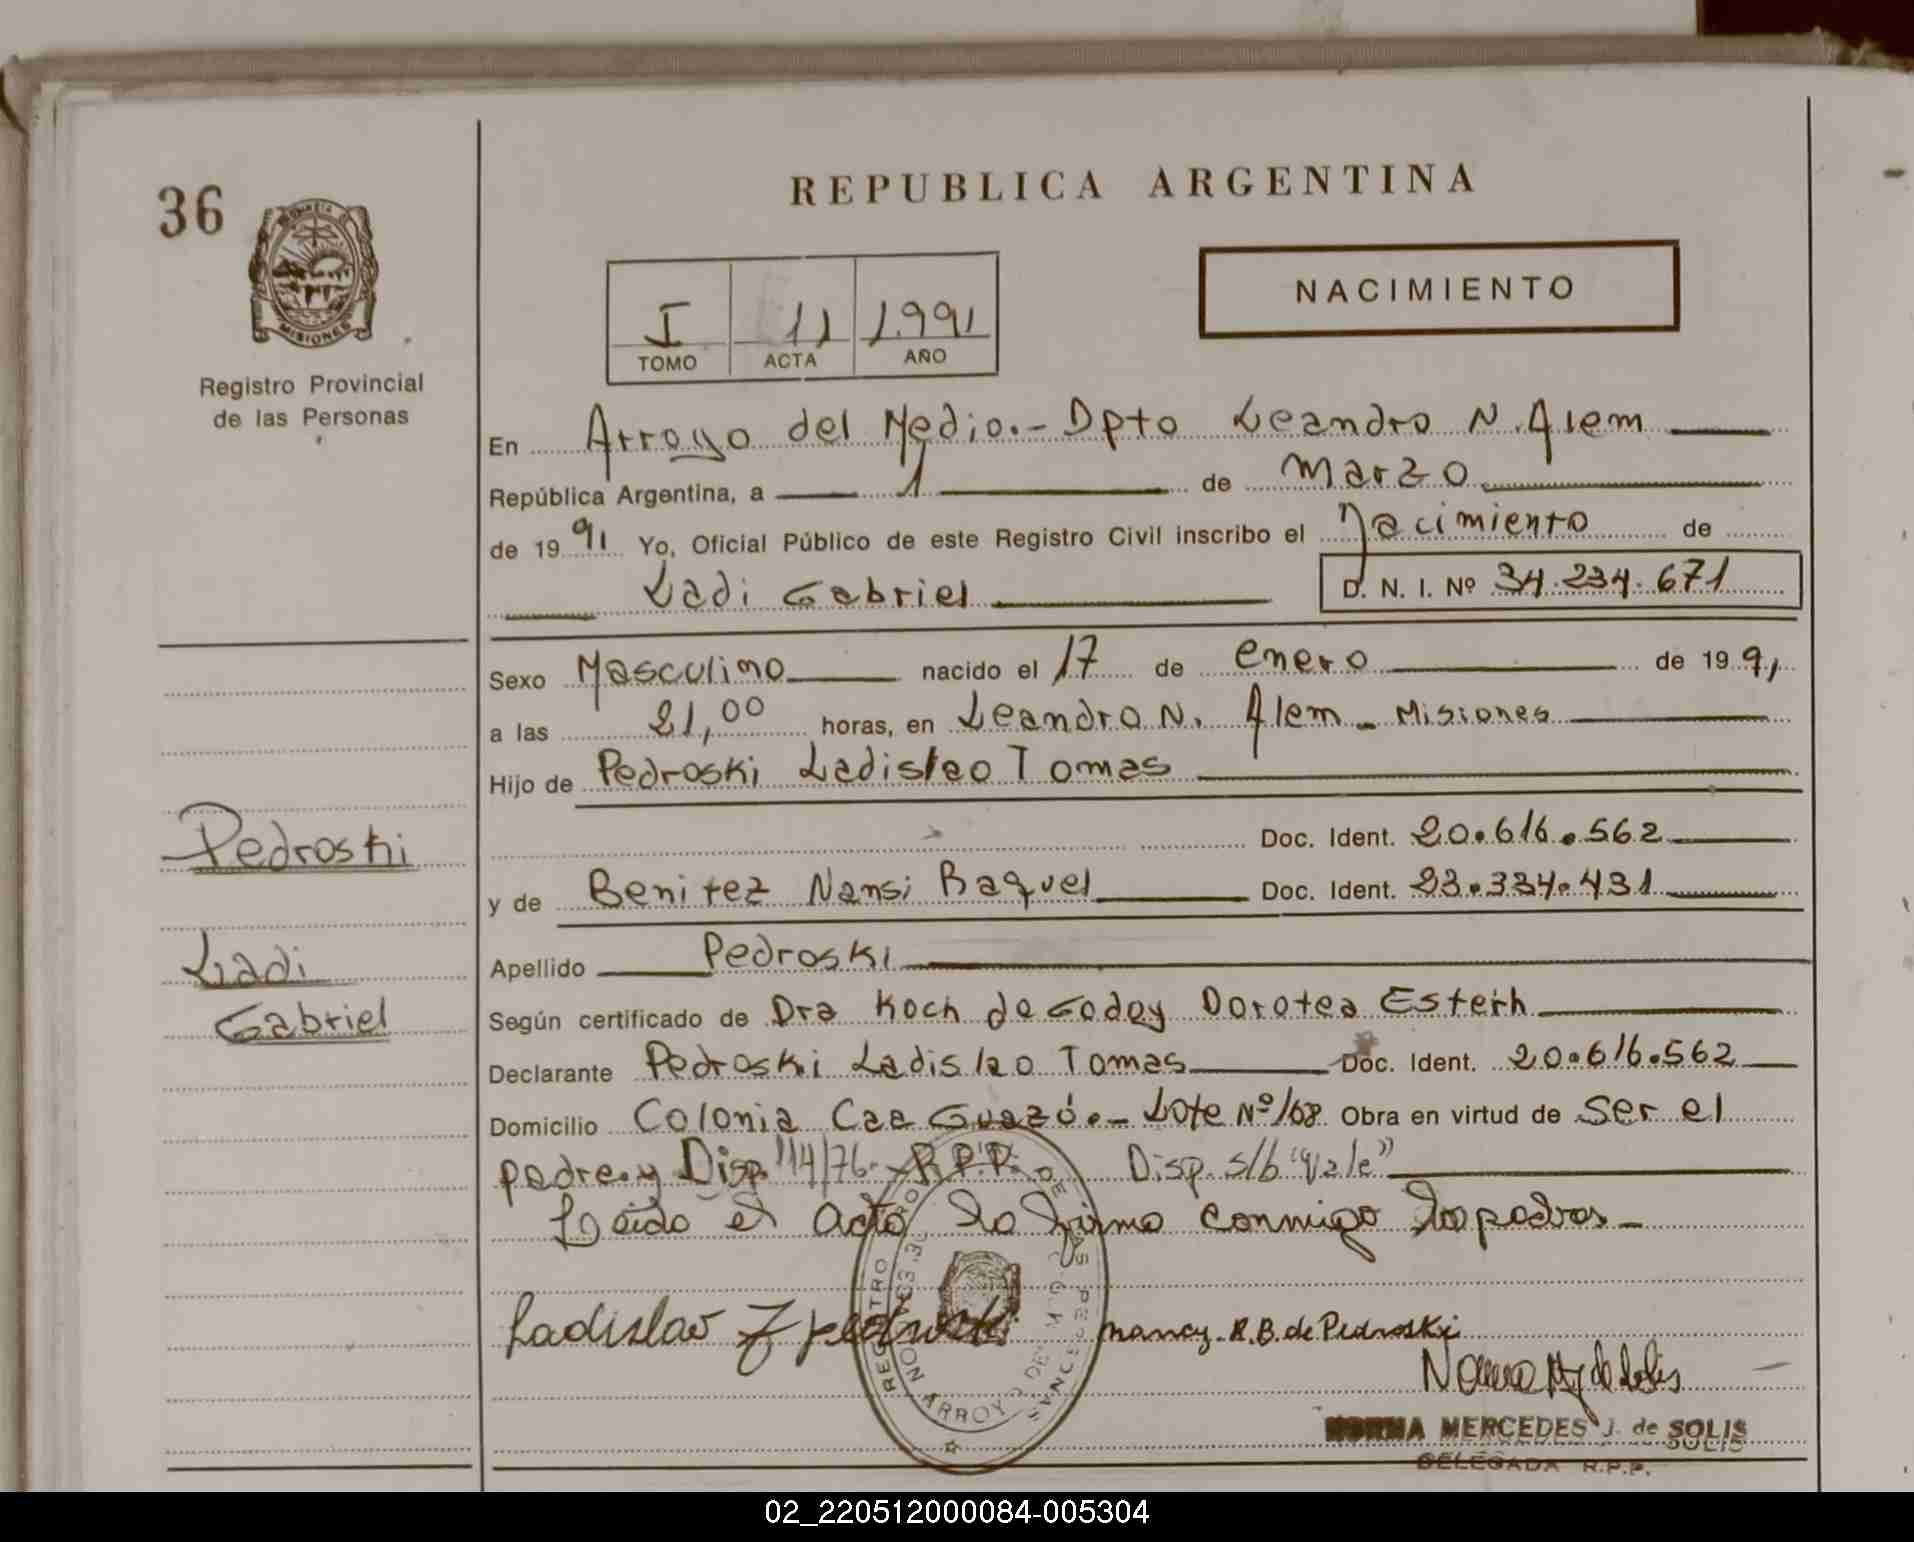 36
PROVINCIA DE
MISIONES
Registro Provincial
de las Personas
REPUBLICA ARGENTINA
NACIMIENTO
I 11 1.991
TOMO ACTA AÑO
En Arroyo del Medio.- Dpto Leandro N. Alem
República Argentina, a 1 de Marzo
de 1991 Yo, Oficial Público de este Registro Civil inscribo el Nacimiento de
Ladi Gabriel D. N. I. Nº 34.234.671
Sexo Masculino nacido el 17 de enero de 1991
a las 21,00 horas, en Leandro N. Alem - Misiones
Hijo de Pedroski Ladislao Tomas
Doc. Ident. 20.616.562
y de Benitez Nansi Raquel Doc. Ident. 23.334.431
Apellido Pedroski
Según certificado de Dra Koch de Godoy Dorotea Esterh
Declarante Pedroski Ladislao Tomas Doc. Ident. 20.616.562
Domicilio Colonia Caa Guazú.- Lote Nº 168 Obra en virtud de Ser el
padre.y Disp. 114/76- R.P.P. Disp. s/b "Vale"
Leido el acta la firma conmigo los padres-
Pedroski
Ladi
Gabriel
Ladislao T Pedroski Nancy. R.B. de Pedroski
NORMA MERCEDES J. de SOLIS
DELEGADA R.P.P.
02_220512000084-005304